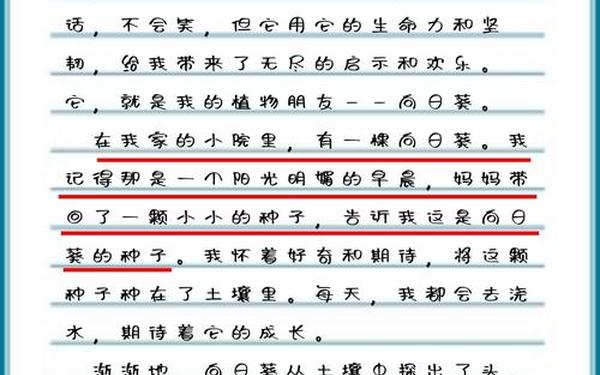 话，不会笑，但它用它的生命力和坚
韧，给我带来了无尽的启示和欢乐。
它，就是我的植物朋友--向日葵。
在我家的小院里，有一棵向日葵。我
记得那是一个阳光明媚的早晨，妈妈带
回了一颗小小的种子，告诉我这是向日
葵的种子。我怀着好奇和期待，将这颗
种子种在了土壤里。每天，我都会去浇
水，期待着它的成长。
渐渐地，向日葵从土壤中探出了头，